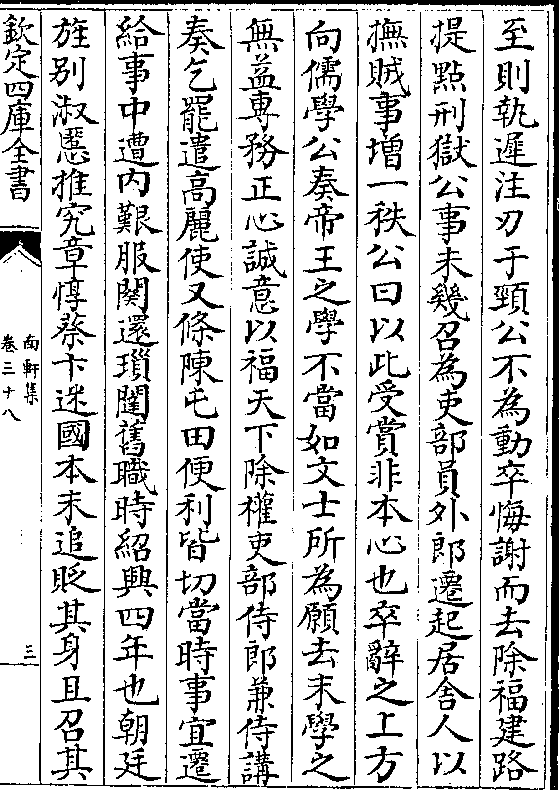 至則執遲注刃于頸公不為動卒悔謝而去除福建路
提點刑獄公事未幾召為吏部員外郎遷起居舍人以
撫賊事增一秩公曰以此受賞非本心也卒辭之上方
向儒學公奏帝王之學不當如文士所為願去末學之
無益專務正心誠意以福天下除權吏部侍郎兼侍講
奏乞罷遣高麗使又條陳屯田便利皆切當時事宜遷
給事中遭内艱服闋還瑣闥舊職時紹興四年也朝廷
旌别淑慝推究章惇蔡卞迷國本末追貶其身且召其
欽定四庫全書
南軒集
卷三十八
三